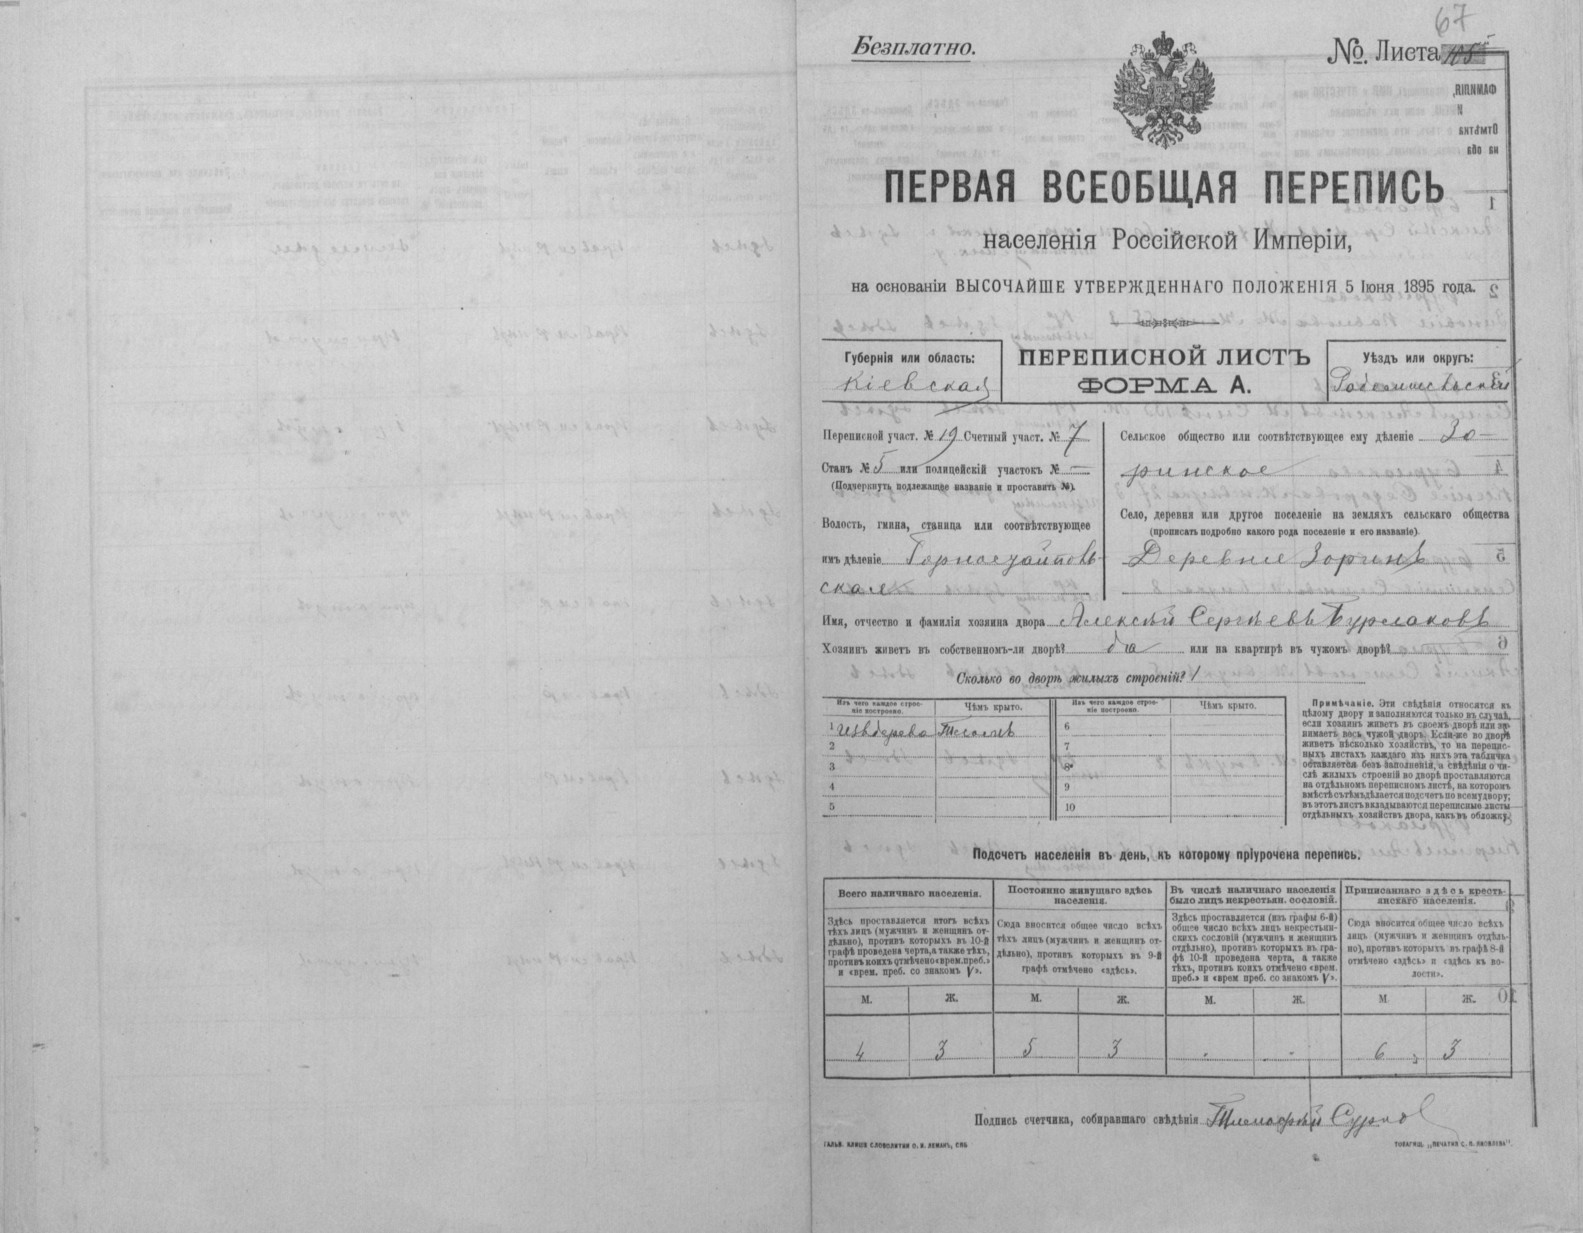 67
Безплатно.
№ Листа 105
ПЕРВАЯ ВСЕОБЩАЯ ПЕРЕПИСЬ
населенія Россійской Имперіи,
на основаніи ВЫСОЧАЙШЕ УТВЕРЖДЕННАГО ПОЛОЖЕНІЯ 5 Іюня 1895 года.
Губернія или область:
Кіевская
ПЕРЕПИСНОЙ ЛИСТЪ
ФОРМА А.
Уѣздъ или округъ:
Радомысльскій
Переписной участ. № 19 Счетный участ. № 7
Станъ № 5 или полицейскій участокъ № —
(Подчеркнуть подлежащее названіе и проставить №).
Волость, гмина, станица или соотвѣтствующее
имъ дѣленіе Горностайповь-
ская
Сельское общество или соотвѣтствующее ему дѣленіе Зо-
ринское
Село, деревня или другое поселеніе на земляхъ сельскаго общества
(прописать подробно какого рода поселеніе и его названіе).
Деревня Зоринъ
Имя, отчество и фамилія хозяина двора Алексѣй Сергѣевъ Бурлаковъ
Хозяинъ живетъ въ собственномъ-ли дворѣ? да или на квартирѣ въ чужомъ дворѣ?
Сколько во дворѣ жилыхъ строеній? 1
Изъ чего каждое строе-
ніе построено.
Чѣмъ крыто.
Изъ чего каждое строе-
ніе построено.
Чѣмъ крыто.
1 Изъ дерева
2
3
4
5
6
7
8
9
10
Примѣчаніе. Эти свѣдѣнія относятся къ
цѣлому двору и заполняются только въ случаѣ,
если хозяинъ живетъ въ своемъ дворѣ или за-
нимаетъ весь чужой дворъ. Если-же во дворѣ
живетъ нѣсколько хозяйствъ, то на перепис-
ныхъ листахъ каждаго изъ нихъ эта табличка
оставляется безъ заполненія, а свѣдѣнія о чи-
слѣ жилыхъ строеній во дворѣ проставляются
на отдѣльномъ переписномъ листѣ, на которомъ
вмѣстѣ съ тѣмъ дѣлается подсчетъ по всему двору;
въ этотъ листъ вкладываются переписные листы
отдѣльныхъ хозяйствъ двора, какъ въ обложку.
Подсчетъ населенія въ день, къ которому пріурочена перепись.
Всего наличнаго населенія.
Здѣсь проставляется итогъ всѣхъ
тѣхъ лицъ (мужчинъ и женщинъ от-
дѣльно), противъ которыхъ въ 10-й
графѣ проведена черта, а также тѣхъ,
противъ коихъ отмѣчено «врем. преб.»
и «врем. преб. со знакомъ V».
Постоянно живущаго здѣсь
населенія.
Сюда вносится общее число всѣхъ
тѣхъ лицъ (мужчинъ и женщинъ от-
дѣльно), противъ которыхъ въ 9-й
графѣ отмѣчено «здѣсь».
Въ числѣ наличнаго населенія
было лицъ некрестьян. сословій.
Здѣсь проставляется (изъ графы 6-й)
общее число всѣхъ лицъ некрестьян-
скихъ сословій (мужчинъ и женщинъ
отдѣльно), противъ которыхъ въ гра-
фѣ 10-й проведена черта, а также
тѣхъ, противъ коихъ отмѣчено «врем.
преб.» и «врем. преб. со знакомъ V».
Приписаннаго здѣсь кресть-
янскаго населенія.
Сюда вносится общее число всѣхъ
лицъ (мужчинъ и женщинъ отдѣль-
но), противъ которыхъ въ графѣ 8-й
отмѣчено «здѣсь» и «здѣсь къ во-
лости».
М. Ж. М. Ж. М. Ж. М. Ж.
4 3 5 3 - - 6 3
Подпись счетчика, собиравшаго свѣдѣнія
ГАЛЬВ. КЛИШЕ СЛОВОЛИТНИ О. И. ЛЕМАНЪ, СПБ.
ТОВАРИЩ. „ПЕЧАТНЯ С. П. ЯКОВЛЕВА“.